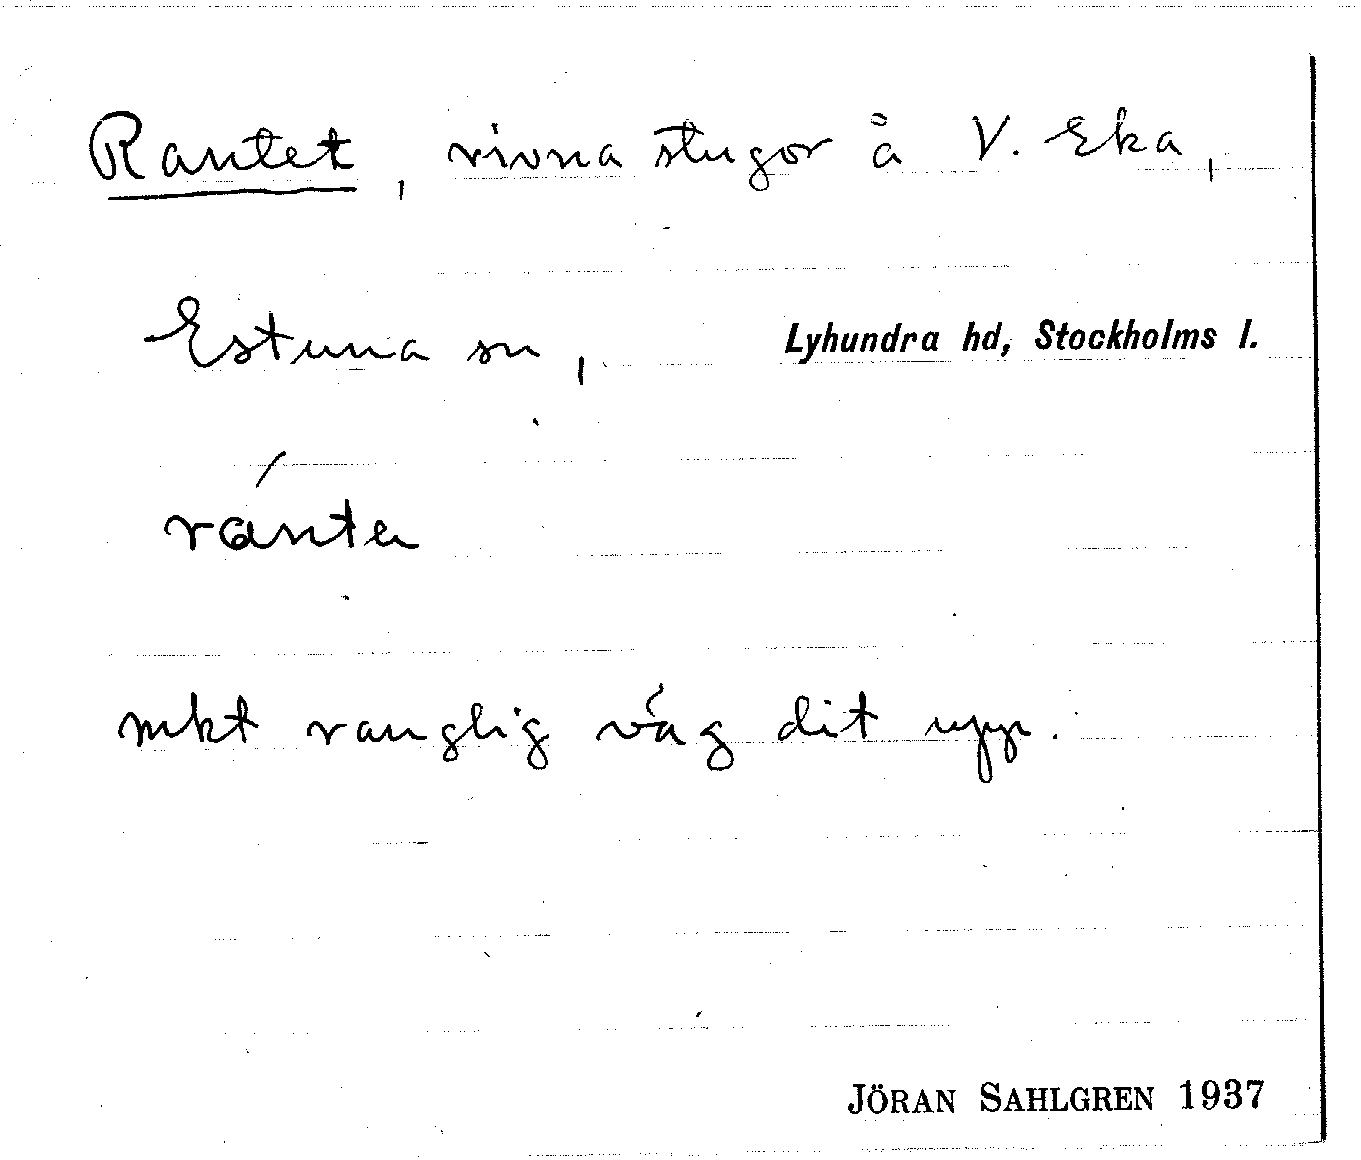 Rantet, rivna stugor å V. Eka,
Estuna sn, Lyhundra hd, Stockholms l.
ránta
mkt ranglig väg dit upp.
JÖRAN SAHLGREN 1937